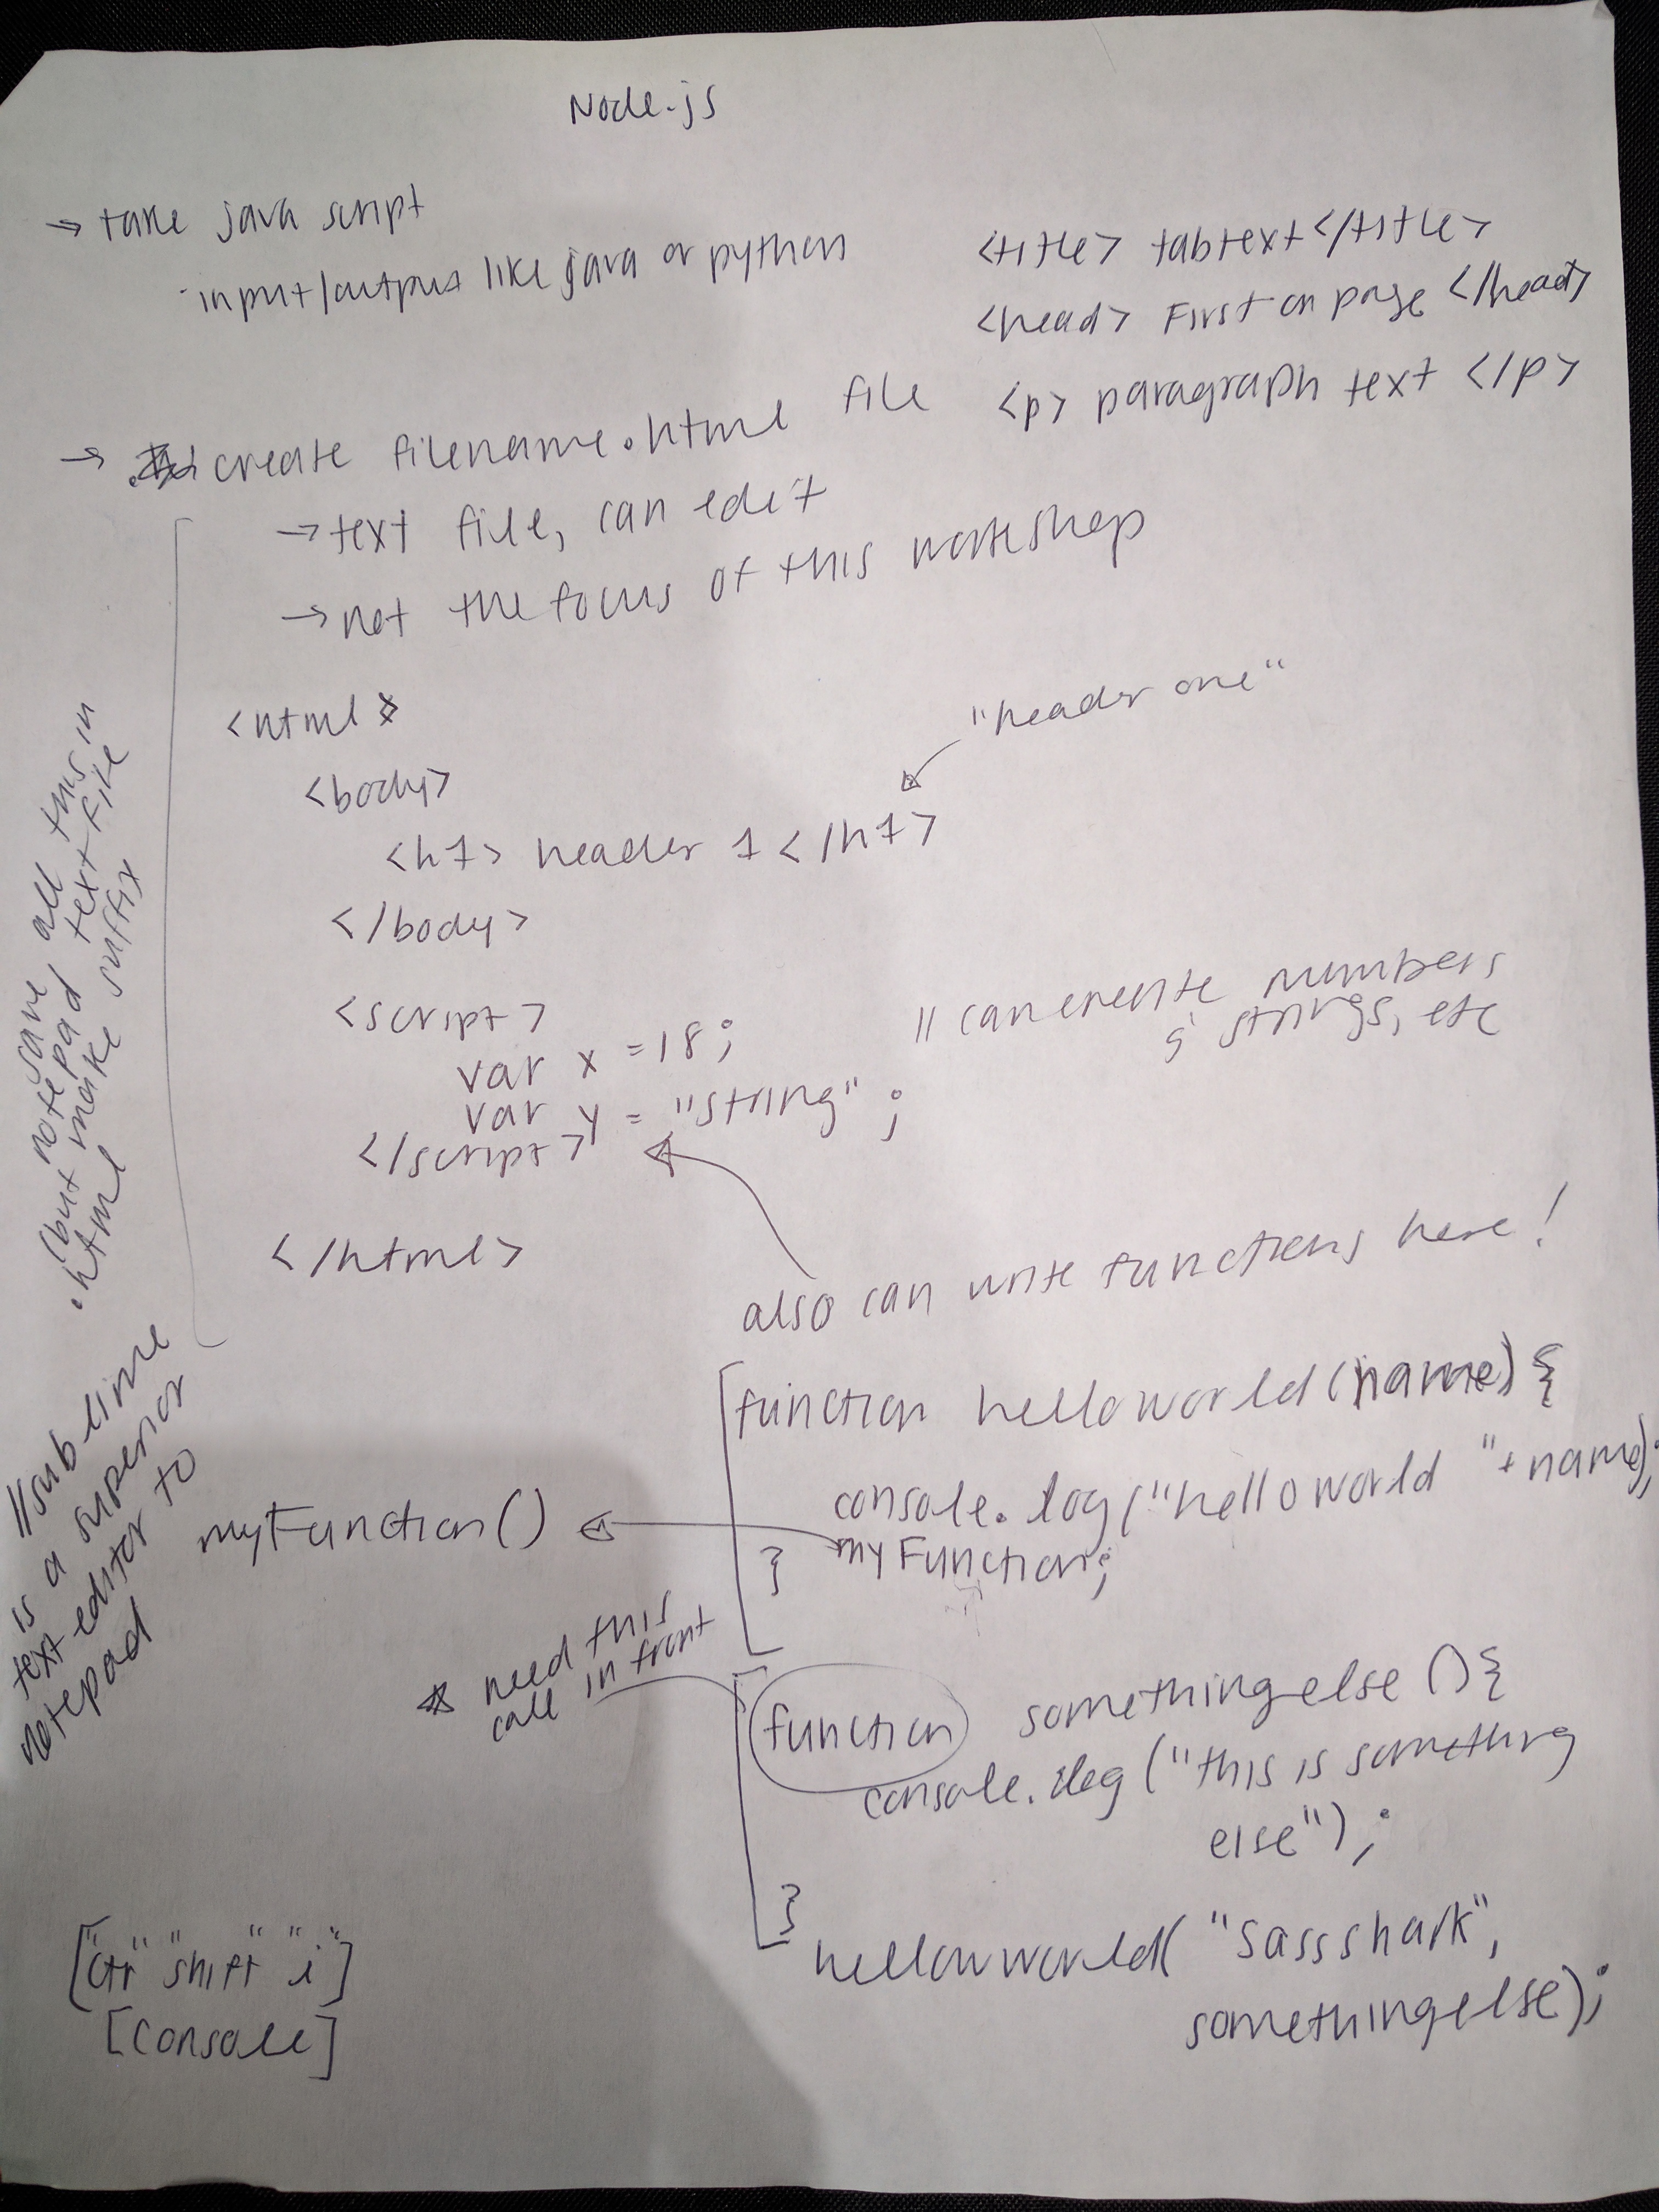 Node.js
→ take java script
input/output like java or python
<title> tabtext </title>
<head> First on page </head>
<p> paragraph text </p>
→ create filename.html file
→ text file, can edit
→ not the focus of this workshop
<html>
<body>
"header one"
<h1> header 1 </h1>
</body>
<script>
var x = 18;
var y = "string";
</script>
// can create numbers
strings, etc
</html>
also can write functions here!
save all this in
(but notepad text file
.html make suffix
//sublime
is a superior
text editor to
notepad
function helloworld(name) {
console.log("hello world "+name);
myFunction;
}
myFunction()
* need this
call in front
function somethingelse () {
console.log("this is something
else");
}
hellowworld("sassshark",
somethingelse);
["ctr" "shift" "i"]
[console]